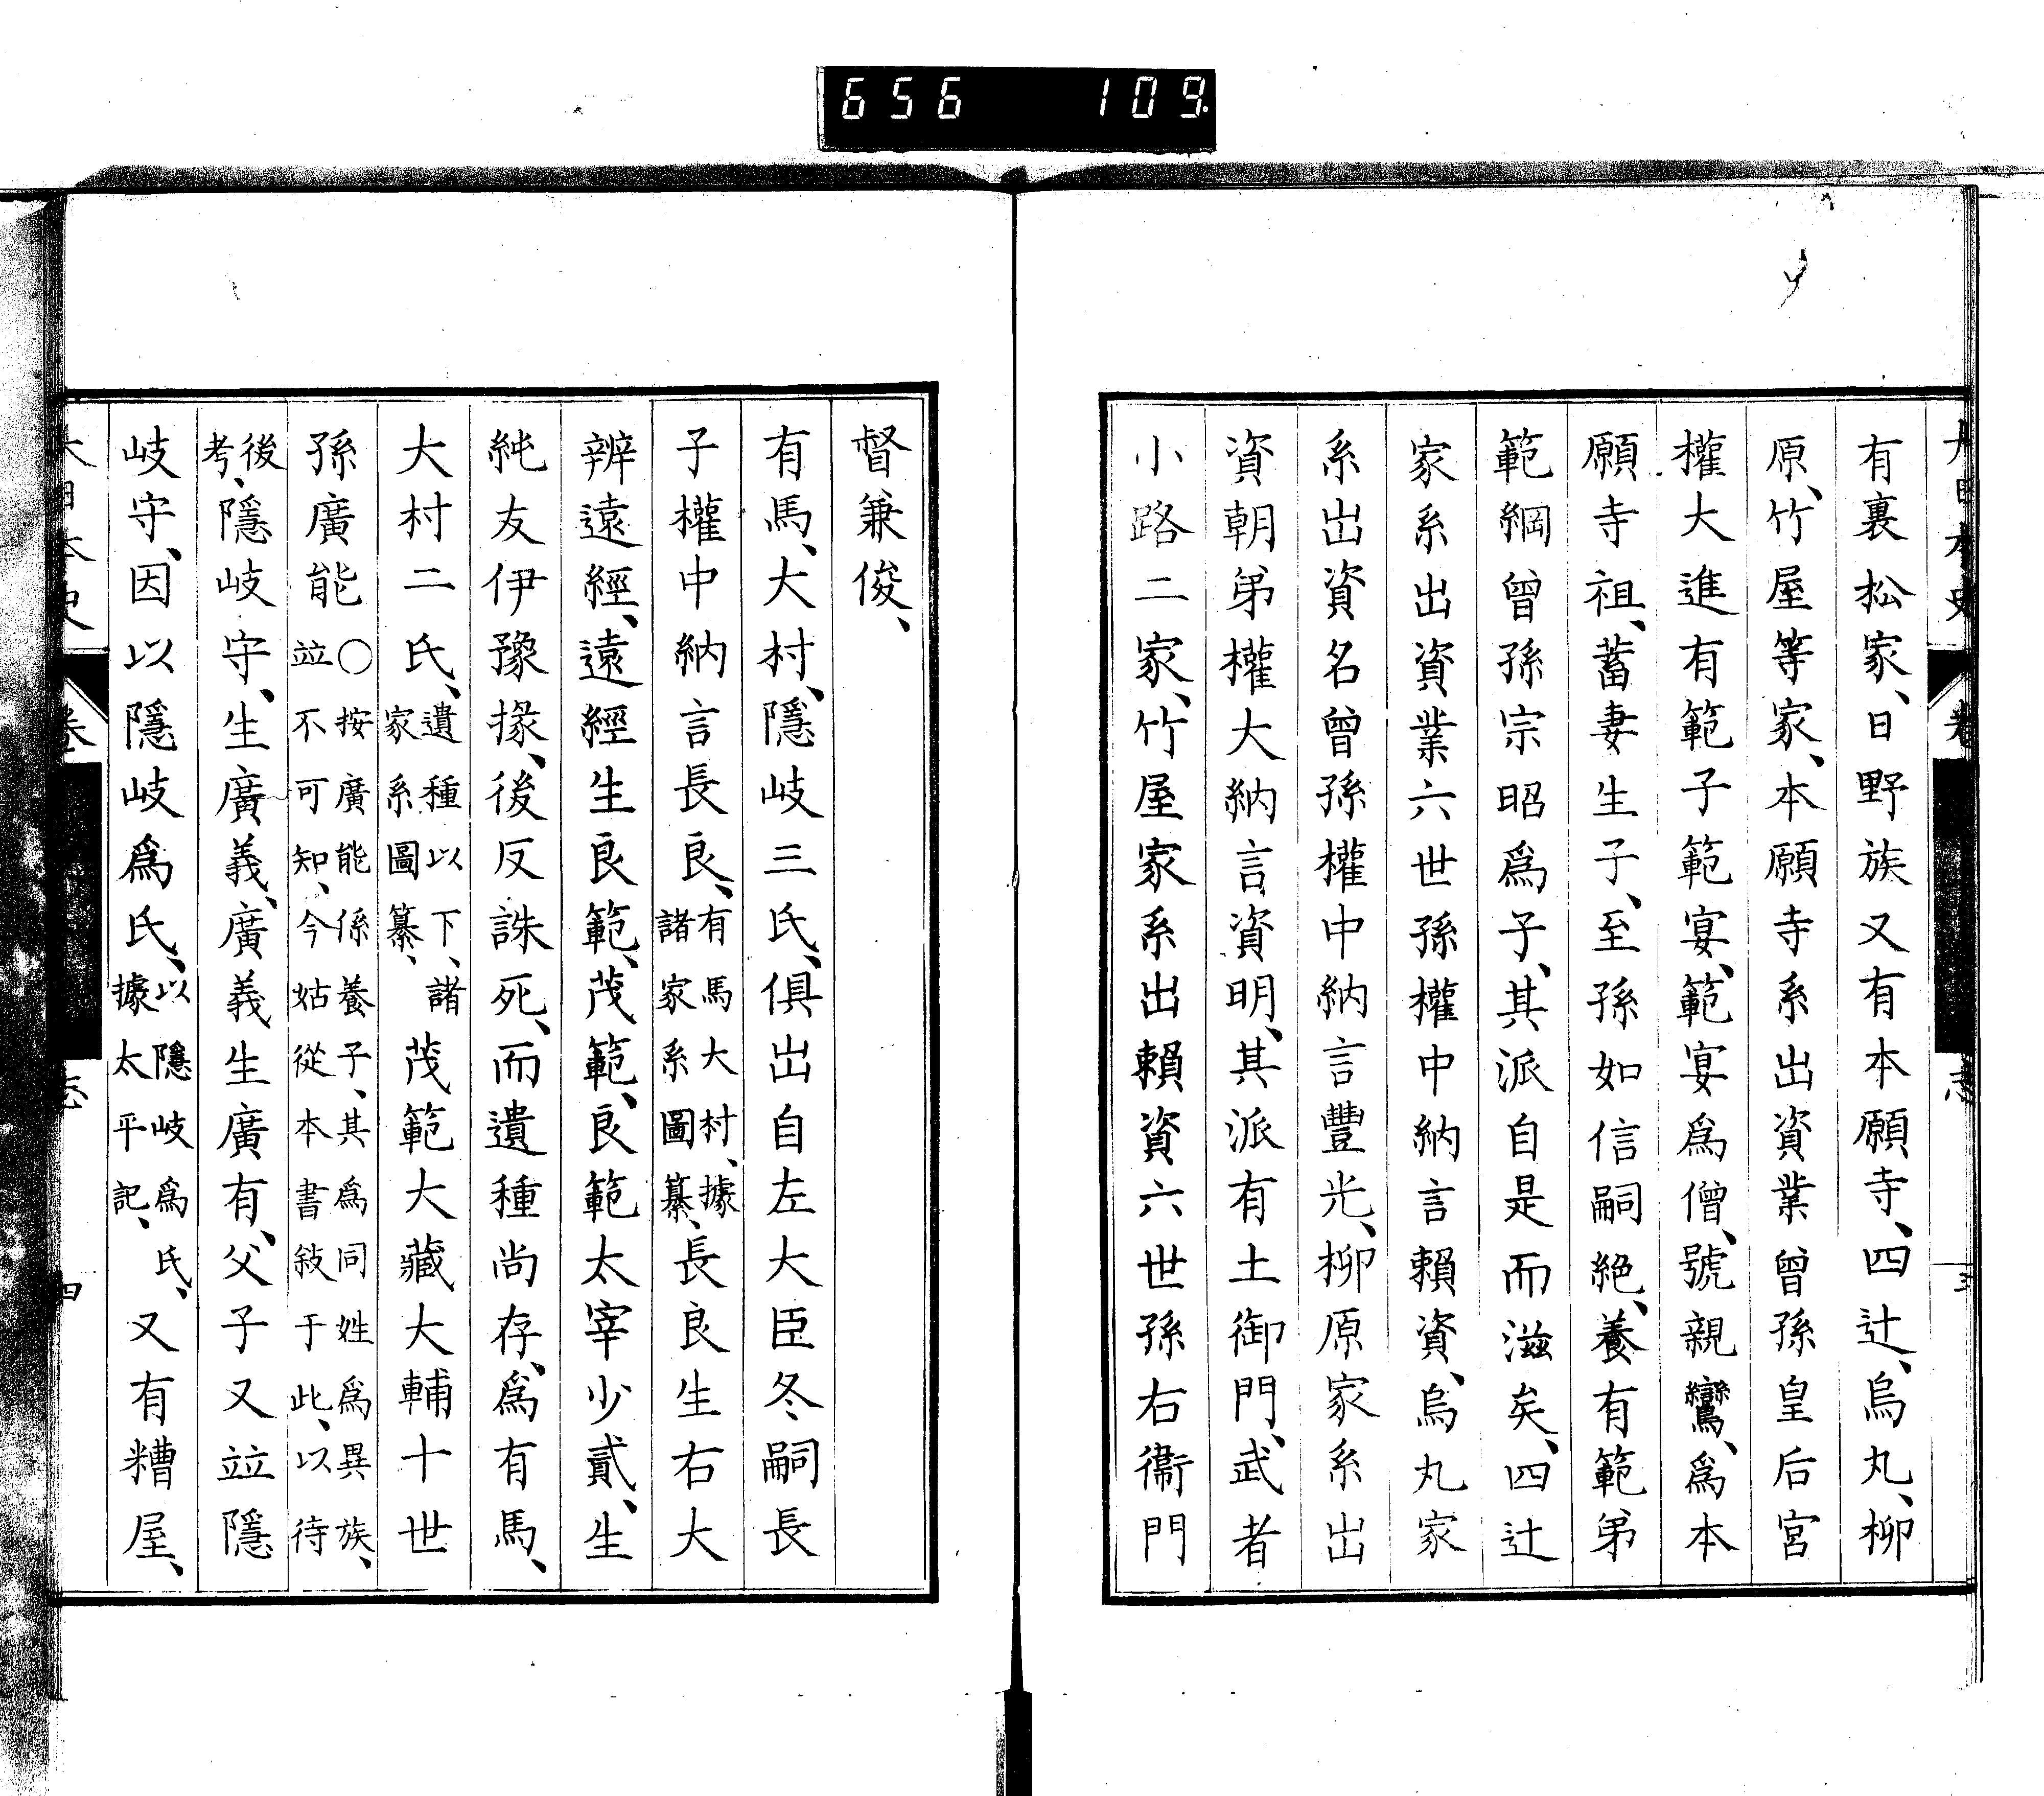 656 109
大日本史 卷 志 三
有裏松家、日野族又有本願寺、四辻、烏丸、柳
原、竹屋等家、本願寺系出資業曾孫皇后宮
權大進有範子範宴、範宴爲僧、號親鸞、爲本
願寺祖、蓄妻生子、至孫如信嗣絶、養有範弟
範綱曾孫宗昭爲子、其派自是而滋矣、四辻
家系出資業六世孫權中納言賴資、烏丸家
系出資名曾孫權中納言豐光、柳原家系出
資朝弟權大納言資明、其派有土御門、武者
小路二家、竹屋家系出賴資六世孫右衞門
督兼俊、
有馬、大村、隱岐三氏、俱出自左大臣冬嗣長
子權中納言長良、有馬大村、據諸家系圖纂、長良生右大
辨遠經、遠經生良範、茂範、良範太宰少貳、生
純友伊豫掾、後反誅死、而遺種尚存、爲有馬、
大村二氏、遺種以下、諸家系圖纂、茂範大藏大輔十世
孫廣能〇按廣能係養子、其爲同姓爲異族、竝不可知、今姑從本書敍于此、以待
後考、隱岐守、生廣義、廣義生廣有、父子又竝隱
岐守、因以隱岐爲氏、以隱岐爲氏、據太平記、又有糟屋、
大日本史 卷 志 四